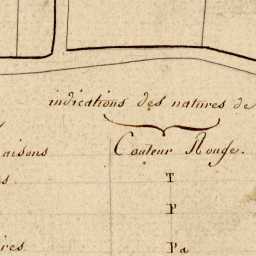 indications des natures de
aisons Couleur Rouge.
s. T
P
res. Pa